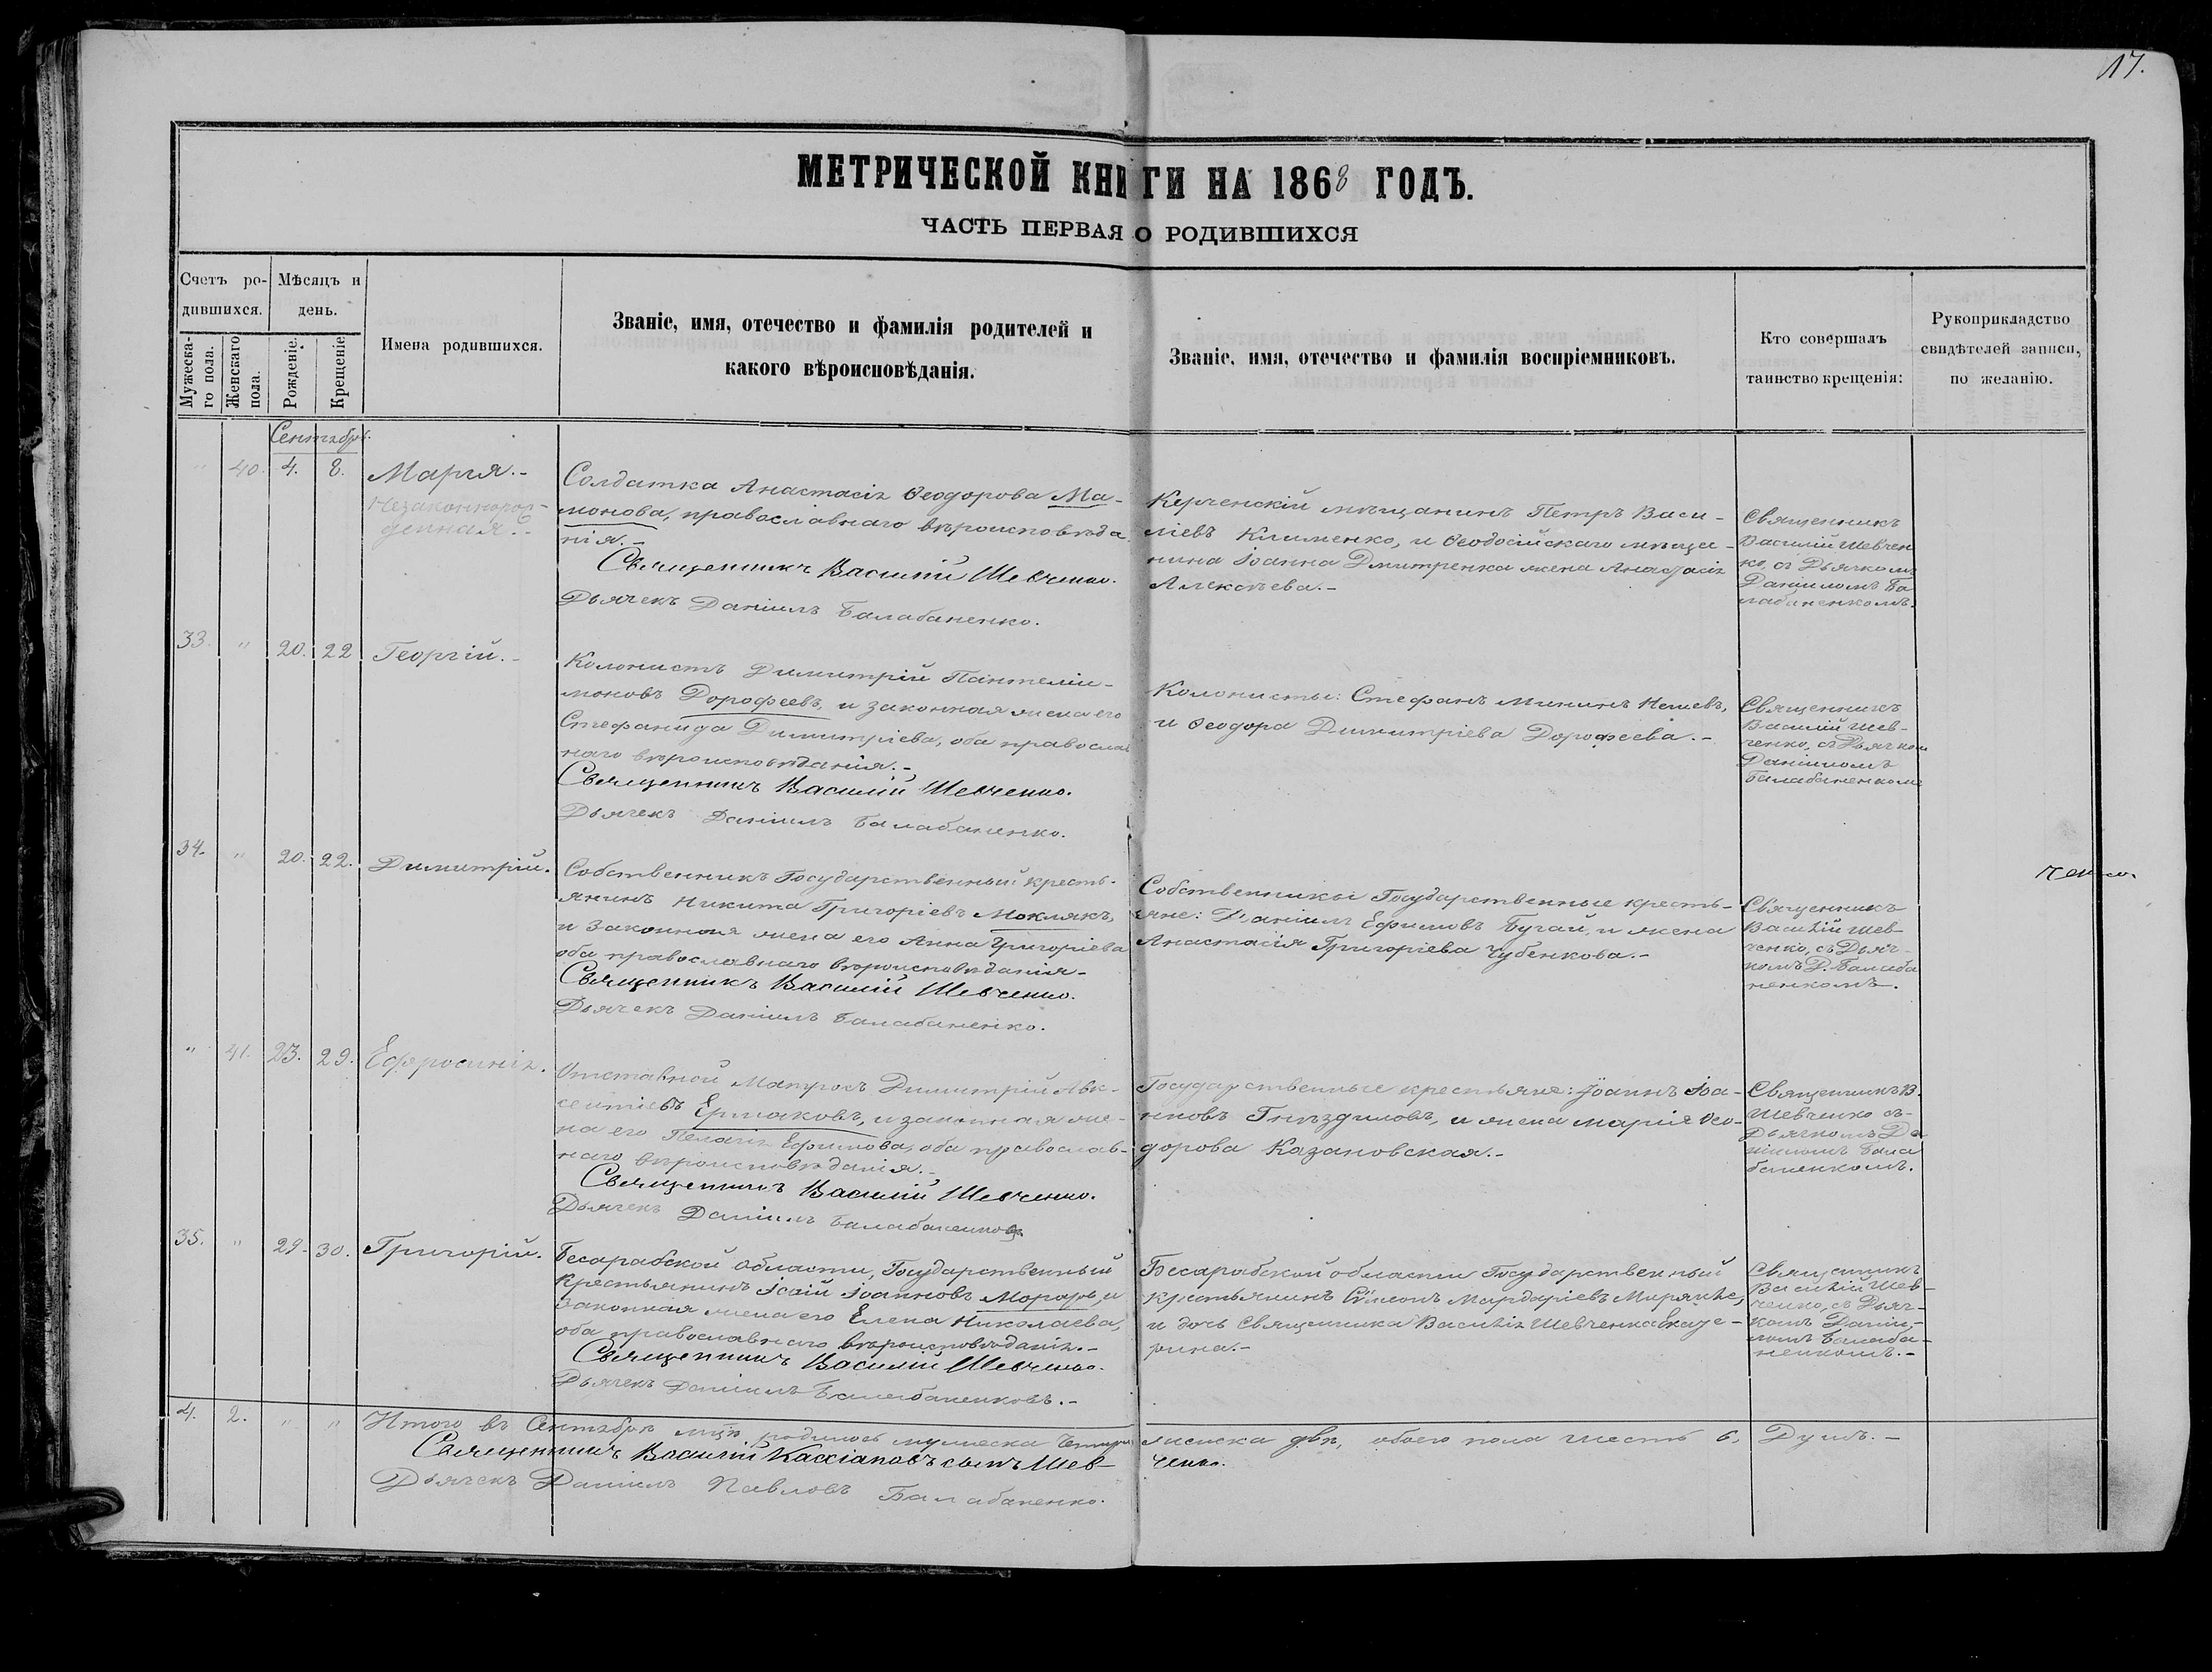 17.
МЕТРИЧЕСКОЙ КНИГИ НА 1868 ГОДЪ.
ЧАСТЬ ПЕРВАЯ О РОДИВШИХСЯ
Счетъ ро-
дившихся.
Мужеска-
го пола.
Женскаго
пола.
Мѣсяцъ и
день.
Рожденіе.
Крещеніе
Имена родившихся.
Званіе, имя, отечество и фамилія родителей и
какого вѣроисповѣданія.
Званіе, имя, отечество и фамилія воспріемниковъ.
Кто совершалъ
таинство крещенія:
Рукоприкладство
свидѣтелей записи,
по желанію.
Сентябрь.
" 40. 4. 8.
Марія.-
Незаконнорож-
денная.-
Солдатка Анастасія Ѳеодорова Ма-
монова, православнаго вѣроисповѣда
нія.-
Священникъ Василій Шевченко.
Дьячекъ Даніилъ Балабаненко.
Керченскій мѣщанинъ Петръ Васи-
ліевъ Клименко, и Ѳеодосійскаго мѣща-
нина Іоанна Дмитренка жена Анастасія
Алексѣева.-
Священникъ
Василій Шевчен
ко, съ Дьячкомъ
Даніиломъ Ба
лабаненкомъ.
33. " 20. 22
Георгій.-
Колонистъ Димитрій Пантелии-
моновъ Дорофеевъ, и законная жена его
Стефанида Димитріева, оба православ
наго вѣроисповѣданія.-
Священникъ Василій Шевченко.
Дьячекъ Даніилъ Балабаненко.
Колонисты: Стефанъ Мининъ Нешевъ,
и Ѳеодора Димитріева Дорофеева.-
Священникъ
Василій Шев-
ченко, съ Дьячком
Даніиломъ
Балабаненкомъ
34. " 20. 22.
Димитрій.
Собственникъ Государственный кресть-
янинъ Никита Григоріевъ Моклякъ,
и законная жена его Анна Григоріева
оба православнаго вѣроисповѣданія-
Священникъ Василій Шевченко.
Дьячекъ Даніилъ Балабаненко.
Собственники Государственные кресть-
яне: Даніилъ Ефимовъ Бугай, и жена
Анастасія Григоріева Чубенкова.-
Священникъ
Василій Шев-
ченко, съ Дьяч-
комъ Д. Балаба
ненкомъ.
ченко.
" 41. 23. 29.
Ефросинія.
Отставной Матросъ Димитрій Авк-
сентіевъ Ермаковъ, и законная же-
на его Пелагія Ефимова, оба православ-
наго вѣроисповѣданія.-
Священникъ Василій Шевченко.
Дьячекъ Даніилъ Балабаненковъ
Государственные крестьяне: Іоаннъ Іоа-
нновъ Гнѣздиловъ, и жена Марія Ѳео-
дорова Казановская.-
Священникъ В.
Шевченко съ-
Дьячкомъ Да
ніиломъ Бала
баненкомъ.
35. " 29. 30.
Григорій.
Бесарабской области, Государственный
крестьянинъ Ісаій Іоанновъ Мораръ, и
законная жена его Елена Николаева,
оба православнаго вѣроисповѣданія.-
Священникъ Василій Шевченко.
Дьячекъ Даніилъ Балабаненковъ.-
Бесарабской области Государственный
крестьянинъ Симеонъ Мардаріевъ
и дочь Священника Василія Шевченка Екате-
рина.-
Священникъ
Василій Шев-
ченко, съ Дьяч-
комъ Даніи-
ломъ Балаба-
ненкомъ.-
4. 2. " " Итого въ Сентябрѣ мцѣ родилось мужеска четыре женска двѣ, обоего пола шесть 6, Душъ.-
Священникъ Василій Кассіановъ сынъ Шев-
ченко.
Дьячекъ Даніилъ Павловъ Балабаненко.